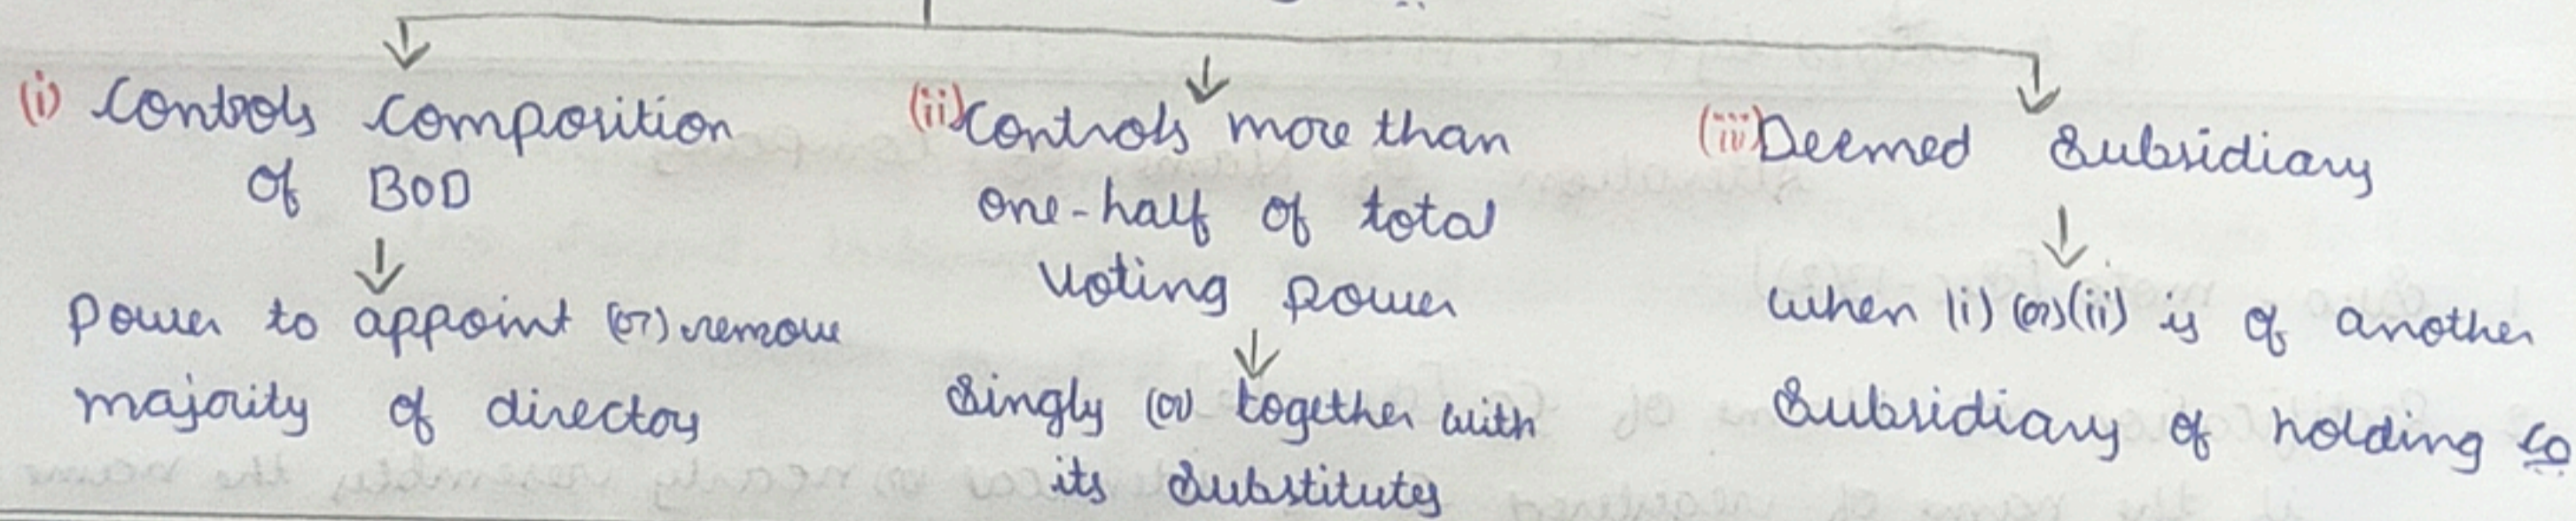 (i) Controls Composition
of BOD
Power to appoint (or) remove
majority of directors
(ii) Controls more than
one-half of total
Voting power
Singly (or) together with
its Substitutes
(iii) Deemed Subsidiary
when (i) (or) (ii) is of another
Subsidiary of holding Co